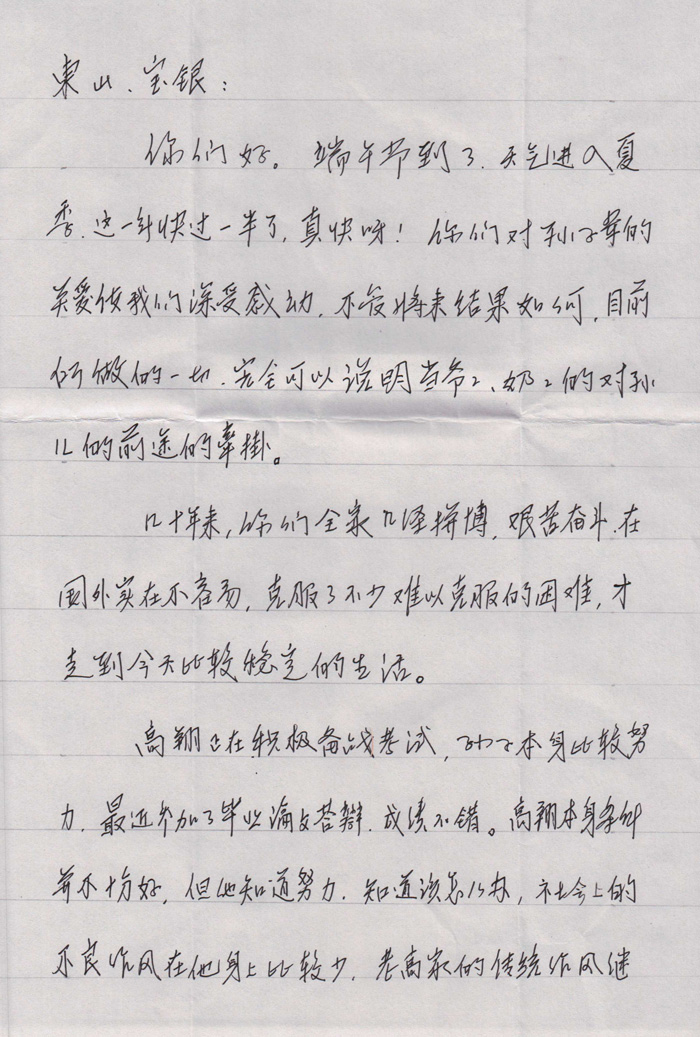 東山、宝银：
你们好。端午节到了、天气进入夏
季、这一年快过一半了，真快呀！你们对孙子辈的
关爱使我们深受感动，不管将来结果如何，目前
所做的一切，完全可以说明当爷２、奶２的对孙
儿的前途的牵掛。
几十年来，你们全家几经拼博，艰苦奋斗，在
国外实在不容易，克服了不少难以克服的困难，才
走到今天比较稳定的生活。
高翔正在积极备战考试，孙子本身比较努
力，最近参加了毕业论文答辩，成绩不错。高翔本身条件
并不十分好，但他知道努力，知道该怎么办，社会上的
不良作风在他身上比较少，老高家的传统作风继